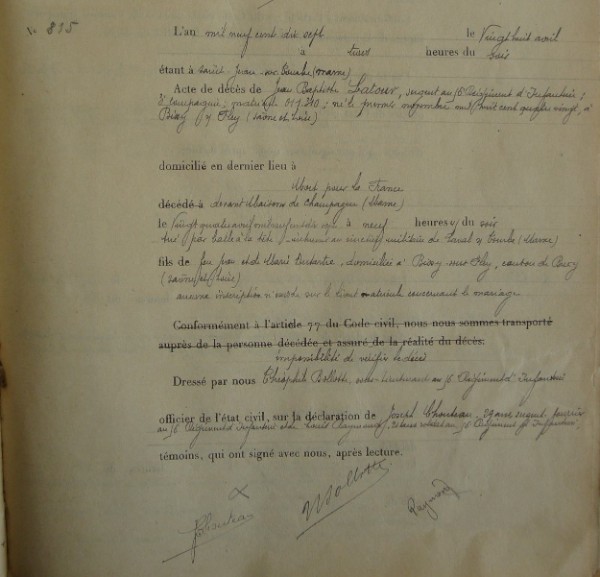 N° 835
L'an mil neuf cent dix sept le Vingt huit avril
à trois heures du soir
étant à Saint Jean sur Tourbe (Marne)
Acte de décès de Jean Baptiste Latour, sergent au 16e Régiment d'Infanterie;
compagnie; matricule 019.210; né le premier novembre mil huit cent quatre vingt, à
Bissy s/ Fley (Saône et Loire)
domicilié en dernier lieu à
Mort pour la France
décédé à devant Maisons de Champagne (Marne)
le Vingt quatre avril mil neuf cent dix sept à neuf heures du soir
tué par balle à la tête, inhumé au cimetière militaire de Laval s/ Tourbe (Marne)
fils de feu et de Marie, domiciliée à Bissy sur Fley, canton de Buxy
(Saône et Loire)
aucune inscription n'existe sur le livret matricule concernant le mariage
Conformément à l'article 77 du Code civil, nous nous sommes transporté
auprès de la personne décédée et assuré de la réalité du décès.
impossibilité de vérifier le décès
Dressé par nous Théophile Bollotte, sous-lieutenant au 16e Régiment d'Infanterie
officier de l'état civil, sur la déclaration de Joseph Chouteau, 29 ans, sergent fourrier
au 16 Régiment d'Infanterie et de Louis Raymond, soldat au 16 Régiment d'Infanterie,
témoins, qui ont signé avec nous, après lecture.
Chouteau
Bollotte
Raymond